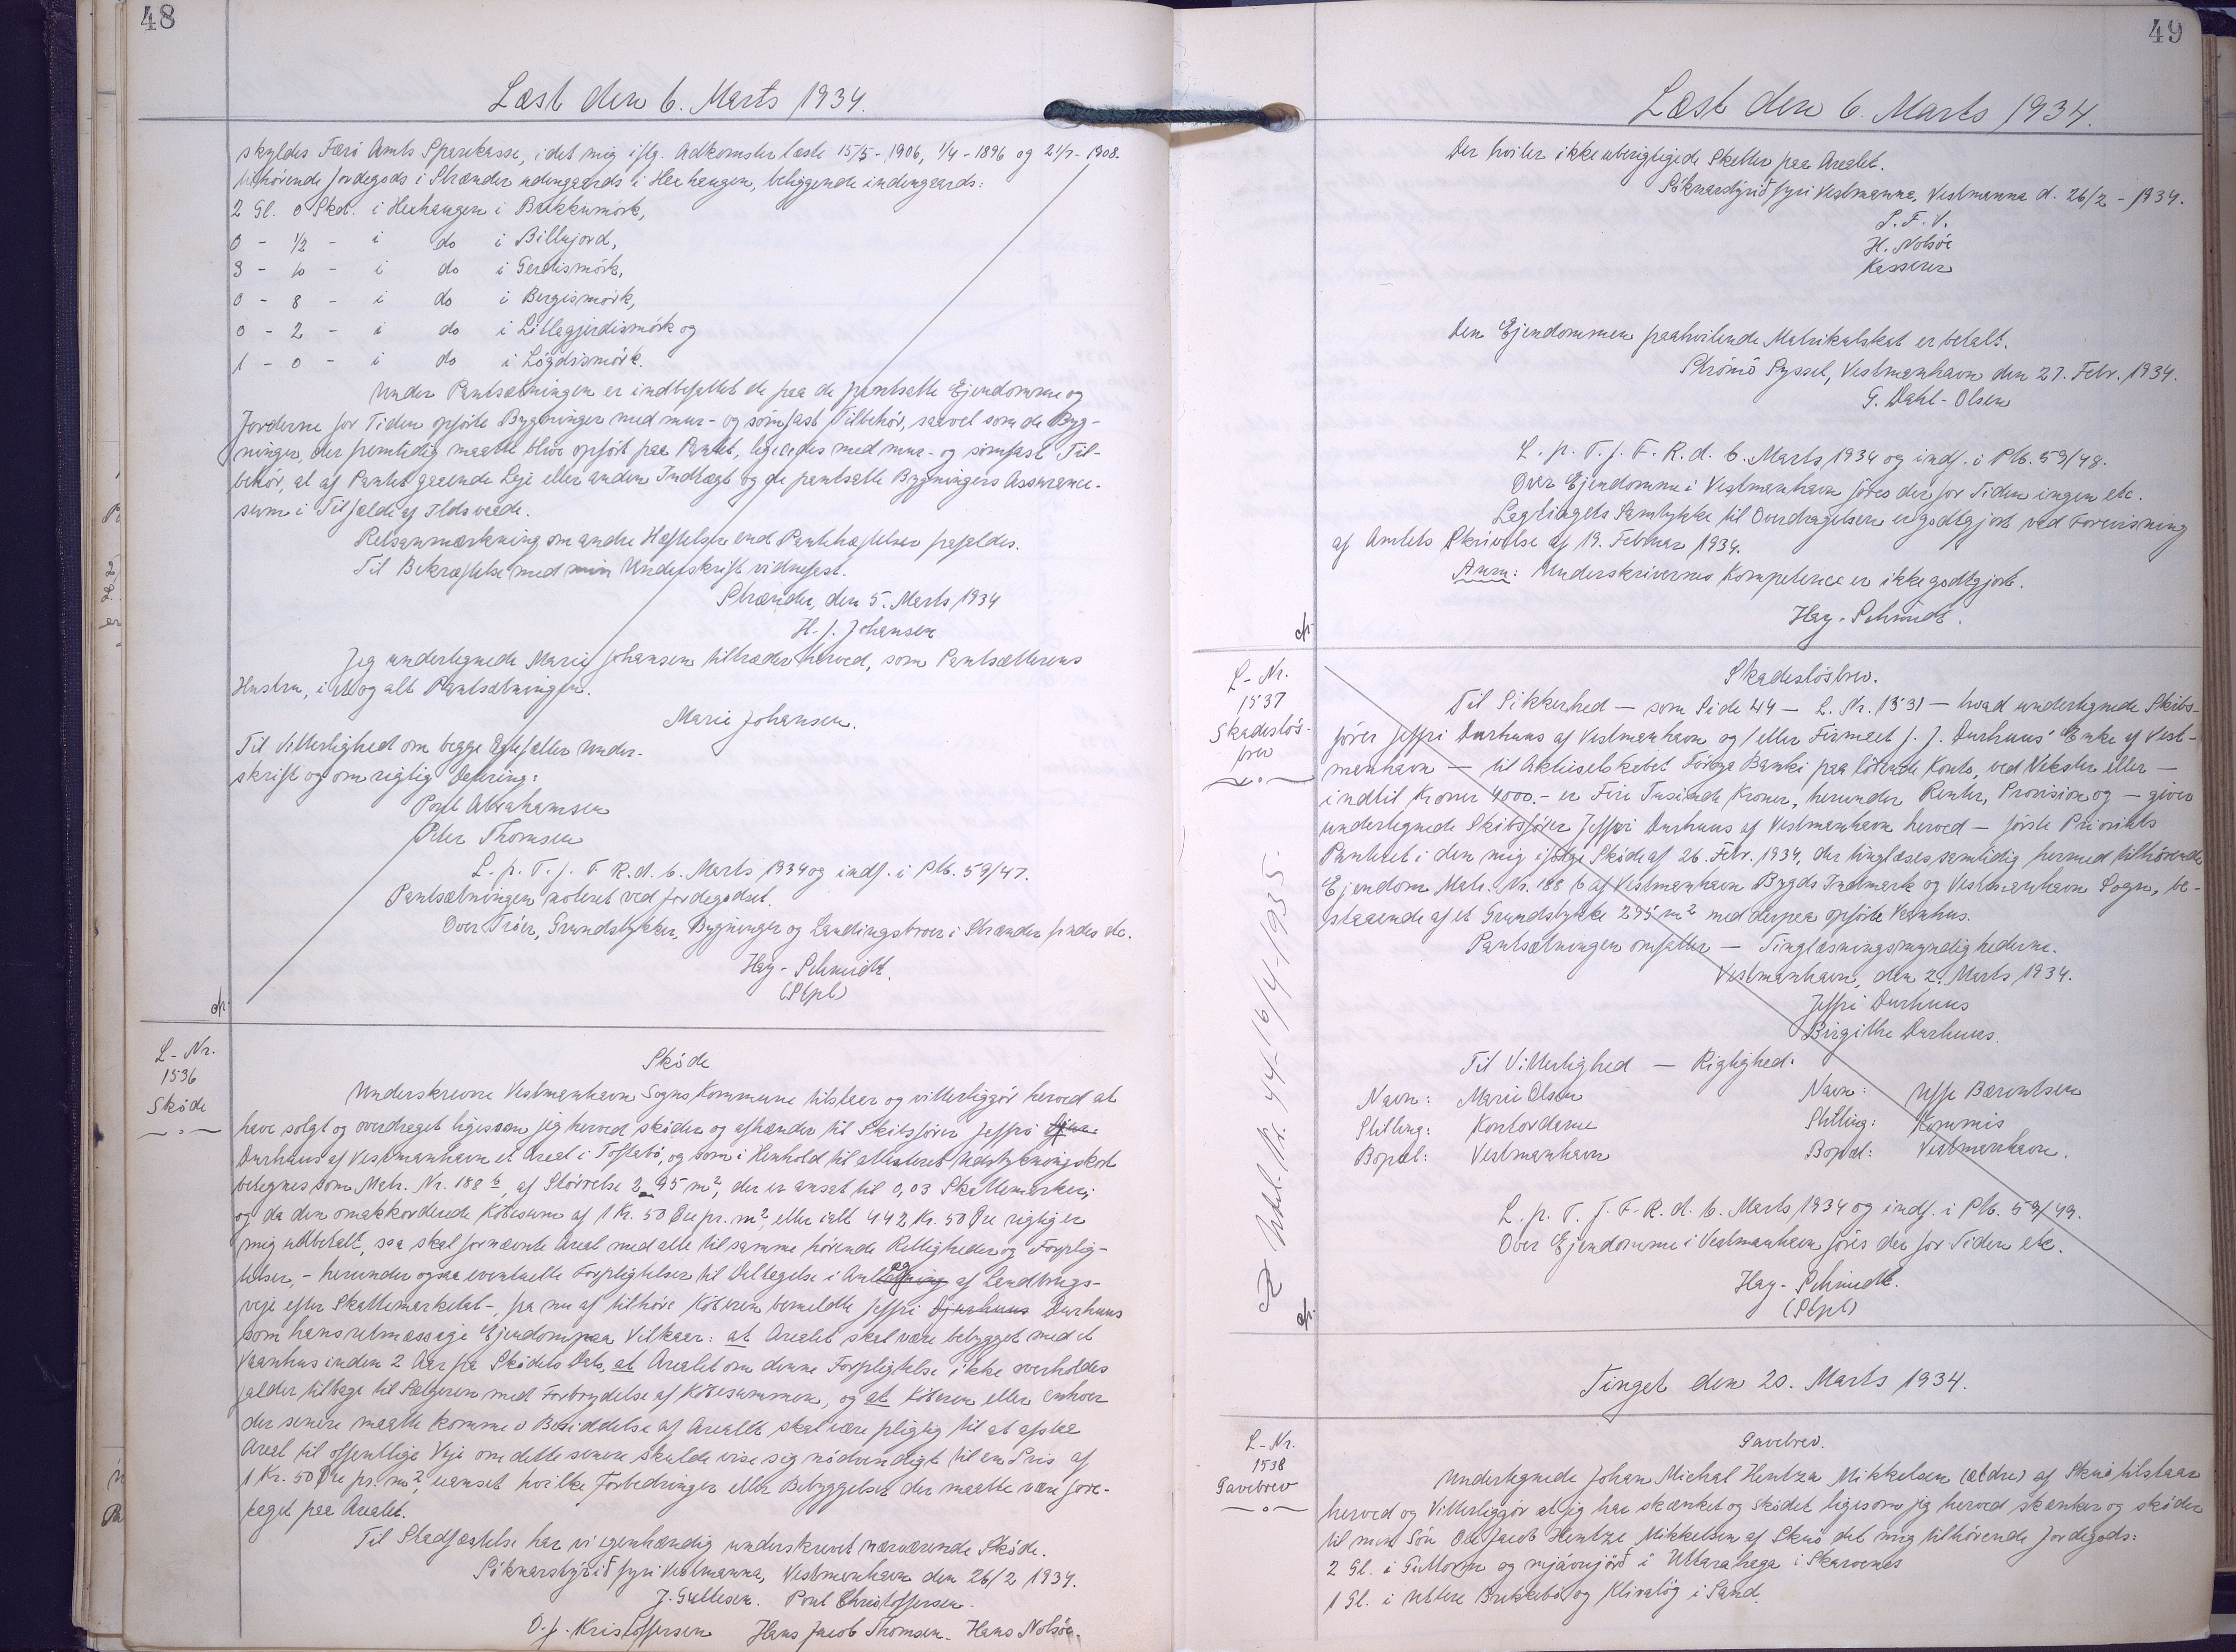 48
Læst den 6. Marts 1934.
skyldes Færö Amts Sparekasse, i det mig iflg. Adkomster læste 15/5 - 1906, 1/4 - 1896 og 21/7 - 1908.
tilhörende Jordegods i Strænder udengaards i Hexhaugen, beliggende indengaards:
2 Gl. 0 Skd. i Hexhaugen i Brekkumörk,
0 - 1/2 - i do i Billujord,
3 - 10 - i do i Gerdismörk,
0 - 8 - i do i Bergismörk,
0 - 2 - i do i Litlegjerdismörk og
1 - 0 - i do i Lögdismörk.
Under Pantsætningen er indbefattet de paa de pantsatte Ejendomme og
Jorderne for Tiden opförte Bygninger med mur- og sömfast Tilbehör, saavel som de Byg-
ninger, der fremtidig maatte blive opfört paa Pantet, ligeledes med mur- og sömfast Til-
behör, al af Pantet gaaende Leje eller anden Indtægt og de pantsatte Bygningers Assurance-
sum i Tilfælde af Ildsvaade.
Retsanmærkning om andre Hæftelser end Pantehæftelser frafaldes.
Til Bekræftelse med min Underskrift vidnefast.
Strænder, den 5. Marts 1934
H. J. Johansen
Jeg undertegnede Marie Johansen tiltræder herved, som Pantsætterens
Hustru, i et og alt Pantsætningen.
Marie Johansen.
Til Vitterlighed om begge Ægtefæller Under-
skrift og om rigtig Datering:
Poul Abrahamsen
Peter Thomsen
L. p. T. f. F. R. d. 6. Marts 1934 og indf. i Ptb. 59/47.
Pantsætningen noteret ved Jordegodset.
Over Tröer, Grundstykker, Bygninger og Landingsbroer i Strænder findes etc.
Hay - Schmidt.
(Stpl)
cfr.
L - Nr.
1536
Sköde
Sköde
Underskrevne Vestmanhavn Sogns Kommune tilstaar og vitterliggör herved at
have solgt og overdraget ligesom jeg herved sköder og afhænder til Skibsförer Jeffri Djur-
Durhuus af Vestmanhavn et Areal i Toftabö, og som i Henhold til attesteret Udstykningskort
betegnes som Matr. Nr. 188 b, af Störrelse 295 m², der er ansat til 0,03 Skattemarker;
og da den omakkorderede Köbesum af 1 Kr. 50 Øre pr. m², eller ialt 442 Kr. 50 Øre rigtig er
mig udbetalt, saa skal fornævnte Areal med alle til samme hörende Rettigheder og Forplig-
telser, - herunder ogsaa eventuelle Forpligtelser til Deltagelse i Anlæg af Landbrugs-
veje efter Skattemarketal -, fra nu af tilhöre Köberen bemeldte Jeffri Djurhuus Durhuus
som hans retmæssige Ejendom paa Vilkaar: at Arealet skal være bebygget med et
Vaanhus inden 2 Aar fra Sködets Dato, at Arealet om denne Forpligtelse ikke overholdes
falder tilbage til Sælgeren med Forbrydelse af Köbesummen, og at Köberen eller enhver
der senere maatte komme i Besiddelse af Arealet skal være pligtig til at afstaa
Areal til offentlige Veje om dette senere skulde vise sig nödvendigt til en Pris af
1 Kr. 50 Øre pr. m², uanset hvilke Forbedringer eller Bebyggelser der maatte være fore-
taget paa Arealet.
Til Stadfæstelse har vi egenhændig underskrevet nærværende Sköde.
Söknarstýrið fyri Vestmanna, Vestmanhavn den 26/2 1934.
J. Guttesen. Poul Christoffersen.
O. J. Kristoffersen Hans Jacob Thomsen - Hans Nolsöe.
49
Læst den 6. Marts 1934.
Der hviler ikke uberigtigede Skatter paa Arealet.
Söknarstýrið fyri Vestmanna, Vestmanna d. 26/2 - 1934.
S. F. V.
H. Nolsöe
Kasserer
Den Ejendommen paahvilende Matrikulskat er betalt.
Strömö Syssel, Vestmanhavn den 27. Febr. 1934.
G. Dahl-Olsen
L. p. T. f. F. R. d. 6. Marts 1934 og indf. i Ptb. 59/48.
Over Ejendomme i Vestmanhavn föres der for Tiden ingen etc.
Lagtingets Samtykke til Overdragelsen er godtgjort ved Forevisning
af Amtets Skrivelse af 19. Februar 1934.
Anm: Underskrivernes Kompetence er ikke godtgjort.
Hay - Schmidt.
cfr.
L - Nr.
1537
Skadeslös-
brev
Skadeslösbrev.
Til Sikkerhed — som Side 44 — L. Nr. 1531 — hvad undertegnede Skibs-
förer Jeffri Durhuus af Vestmanhavn og/eller Firmaet J. J. Durhuus' Enke af Vest-
manhavn — til Aktieselskabet Föroya Banki paa löbende Konto, ved Veksler eller —
indtil Kroner 4000.- er Fire Tusinde Kroner, herunder Renter, Provision og — giver
undertegnede Skibsförer Jeffri Durhuus af Vestmanhavn herved — förste Prioritets
Panteret i den mig ifölge Sköde af 26. Febr. 1934, der tinglæses samtidig hermed tilhörende
Ejendom Matr. Nr. 188 b af Vestmanhavn Bygds Indmark og Vestmanhavn Sogn, be-
staaende af et Grundstykke 295 m² med derpaa opförte Vaanhus.
Pantsætningen omfatter — Tinglæsningsmyndighederne.
Vestmanhavn, den 2. Marts 1934.
Jeffri Durhuus
Birgithe Durhuus.
Til Vitterlighed — Rigtighed:
Navn: Marie Olsen Navn: Uffe Bærentsen
Stilling: Kontordame Stilling: Kommis
Bopæl: Vestmanhavn Bopæl: Vestmanhavn.
L. p. T. f. F. R. d. 6. Marts 1934 og indf. i Ptb. 59/49.
Over Ejendomme i Vestmanhavn föres der for Tiden etc.
Hay - Schmidt.
(Stpl)
cfr.
Udsl. Nr. 44 - 16/4 - 1935.
Tinget den 20. Marts 1934.
L - Nr.
1538
Gavebrev
Gavebrev.
Undertegnede Johan Michal Hentza Mikkelsen (ældre) af Skuö tilstaar
herved og Vitterliggör at jeg har skænket og sködet, ligesom jeg herved skænker og sköder
til min Sön Ole Jacob Hentze Mikkelsen af Skuö det mig tilhörende Jordegods:
2 Gl. i Guttorm og mjávujörð i Uttarahaga i Skarvenes
1 Gl. i Uttere Brekkebö og Klivalög i Sand.